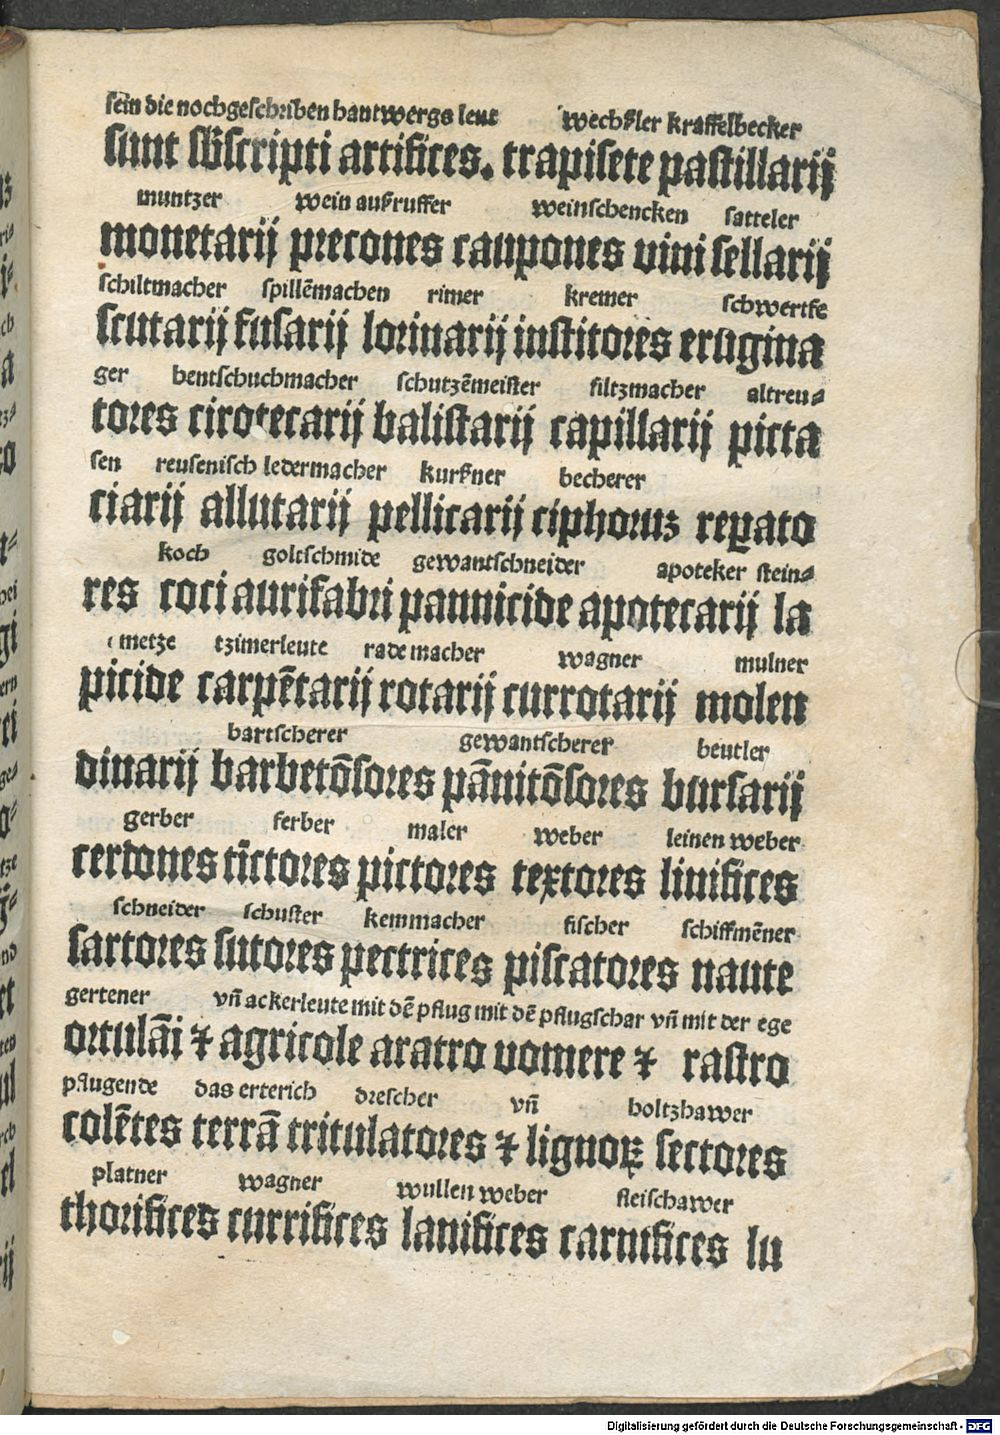 sein die nochgeschriben hantwergs leut wechßler kraffelbecker
sunt sb̄scripti artifices. trapisete pastillarij
muntzer wein außruffer weinschencken satteler
monetarij precones caupones vini sellarij
schiltmacher spillēmachen rimer kremer schwertfe
scutarij fusarij lorinarij institores erugina
ger hentschuchmacher schutzēmeister filtzmacher altreu⸗
tores cirotecarij balistarij capillarij picta
sen reusenisch ledermacher kurßner becherer
ciarij allutarij pellicarij ciphoruz reꝑato
koch goltschmide gewantschneider apoteker stein⸗
res coci aurifabri pannicide apotecarij la
metze tzimerleute rademacher wagner mulner
picide carpētarij rotarij currotarij molen
bartscherer gewantscherer beutler
dinarij barbetōsores pānitōsores bursarij
gerber ferber maler weber leinen weber
cerdones tīctores pictores textores linifices
schneider schuster kemmacher fischer schiffmēner
sartores sutores pectrices piscatores naute
gertener vn̄ ackerleute mit dē pflug mit dē pflugschar vn̄ mit der ege
ortulāi ⁊ agricole aratro vomere ⁊ rastro
pflugende das erterich drescher vn̄ holtzhawer
colētes terrā tritulatores ⁊ lignoꝝ sectores
platner wagner wullen weber fleischawer
thorifices currifices lanifices carnifices lu
Digitalisierung gefördert durch die Deutsche Forschungsgemeinschaft - DFG